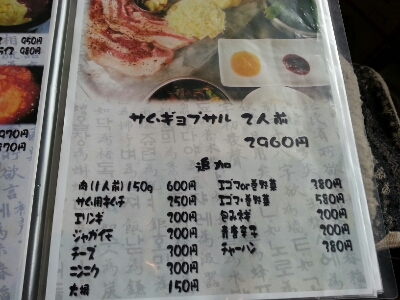 950円
980円
970円
870円
サムギョプサル 2人前
2960円
追加
肉(1人前)150g 600円
サム用キムチ 250円
エリンギ 200円
ジャガイモ 200円
チーズ 300円
ニンニク 200円
大根 150円
エゴマor春野菜 380円
エゴマ・春野菜 580円
包み 200円
青唐辛子 200円
チャーハン 380円